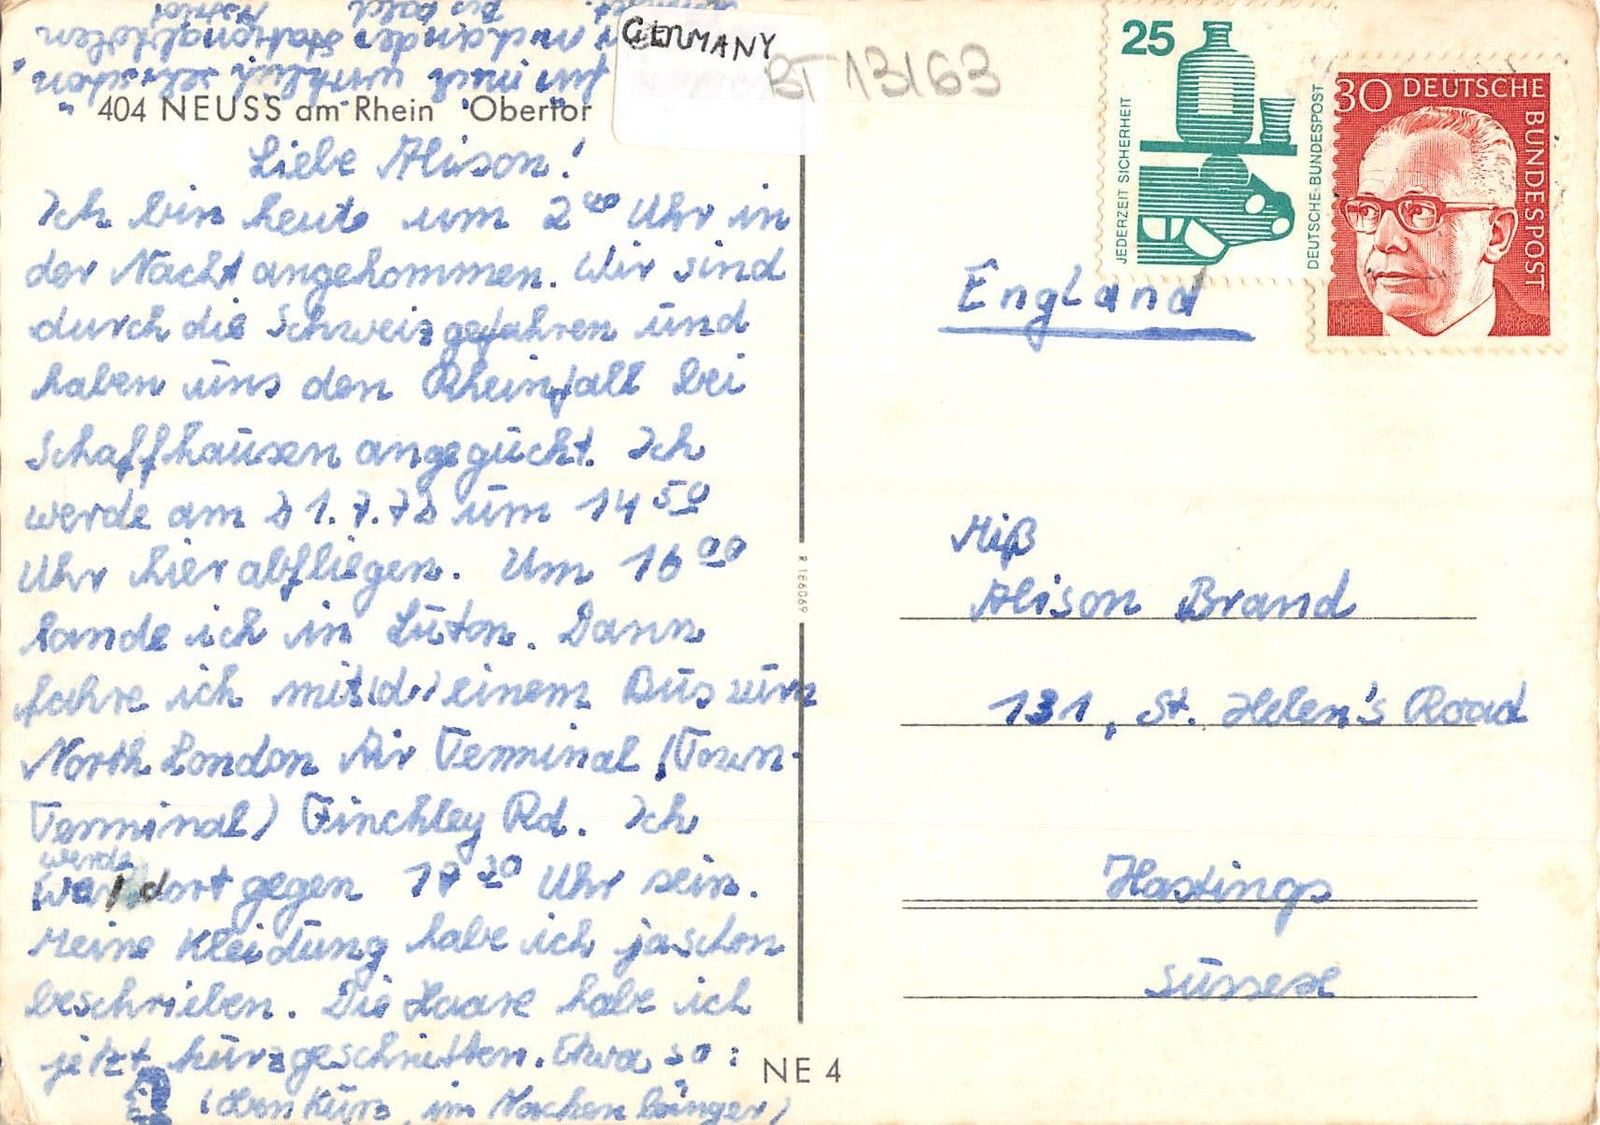 GERMANY
BT 13163
404 NEUSS am Rhein Obertor
Liebe Alison!
Ich bin heute um 2⁴⁰ Uhr in
der Nacht angekommen. Wir sind
durch die Schweiz gefahren und
haben uns den Rheinfall bei
Schaffhausen angeguckt. Ich
werde am 21.7.72 um 14⁵⁰
Uhr hier abfliegen. Um 16⁰⁰
lande ich in Luton. Dann
fahre ich mit (d.) einem Bus zum
North London Air Terminal (Town-
Terminal) Finchley Rd. Ich
werde
dort gegen 17²⁰ Uhr sein.
Meine Kleidung habe ich ja schon
beschrieben. Die Haare habe ich
jetzt kurzgeschnitten. Etwa so:
(oben kurz, im Nacken länger)
25
JEDERZEIT SICHERHEIT
DEUTSCHE BUNDESPOST
30 DEUTSCHE
BUNDESPOST
England
Miß
Alison Brand
131, St. Helen's Road
Hastings
Sussex
R 186069
NE 4